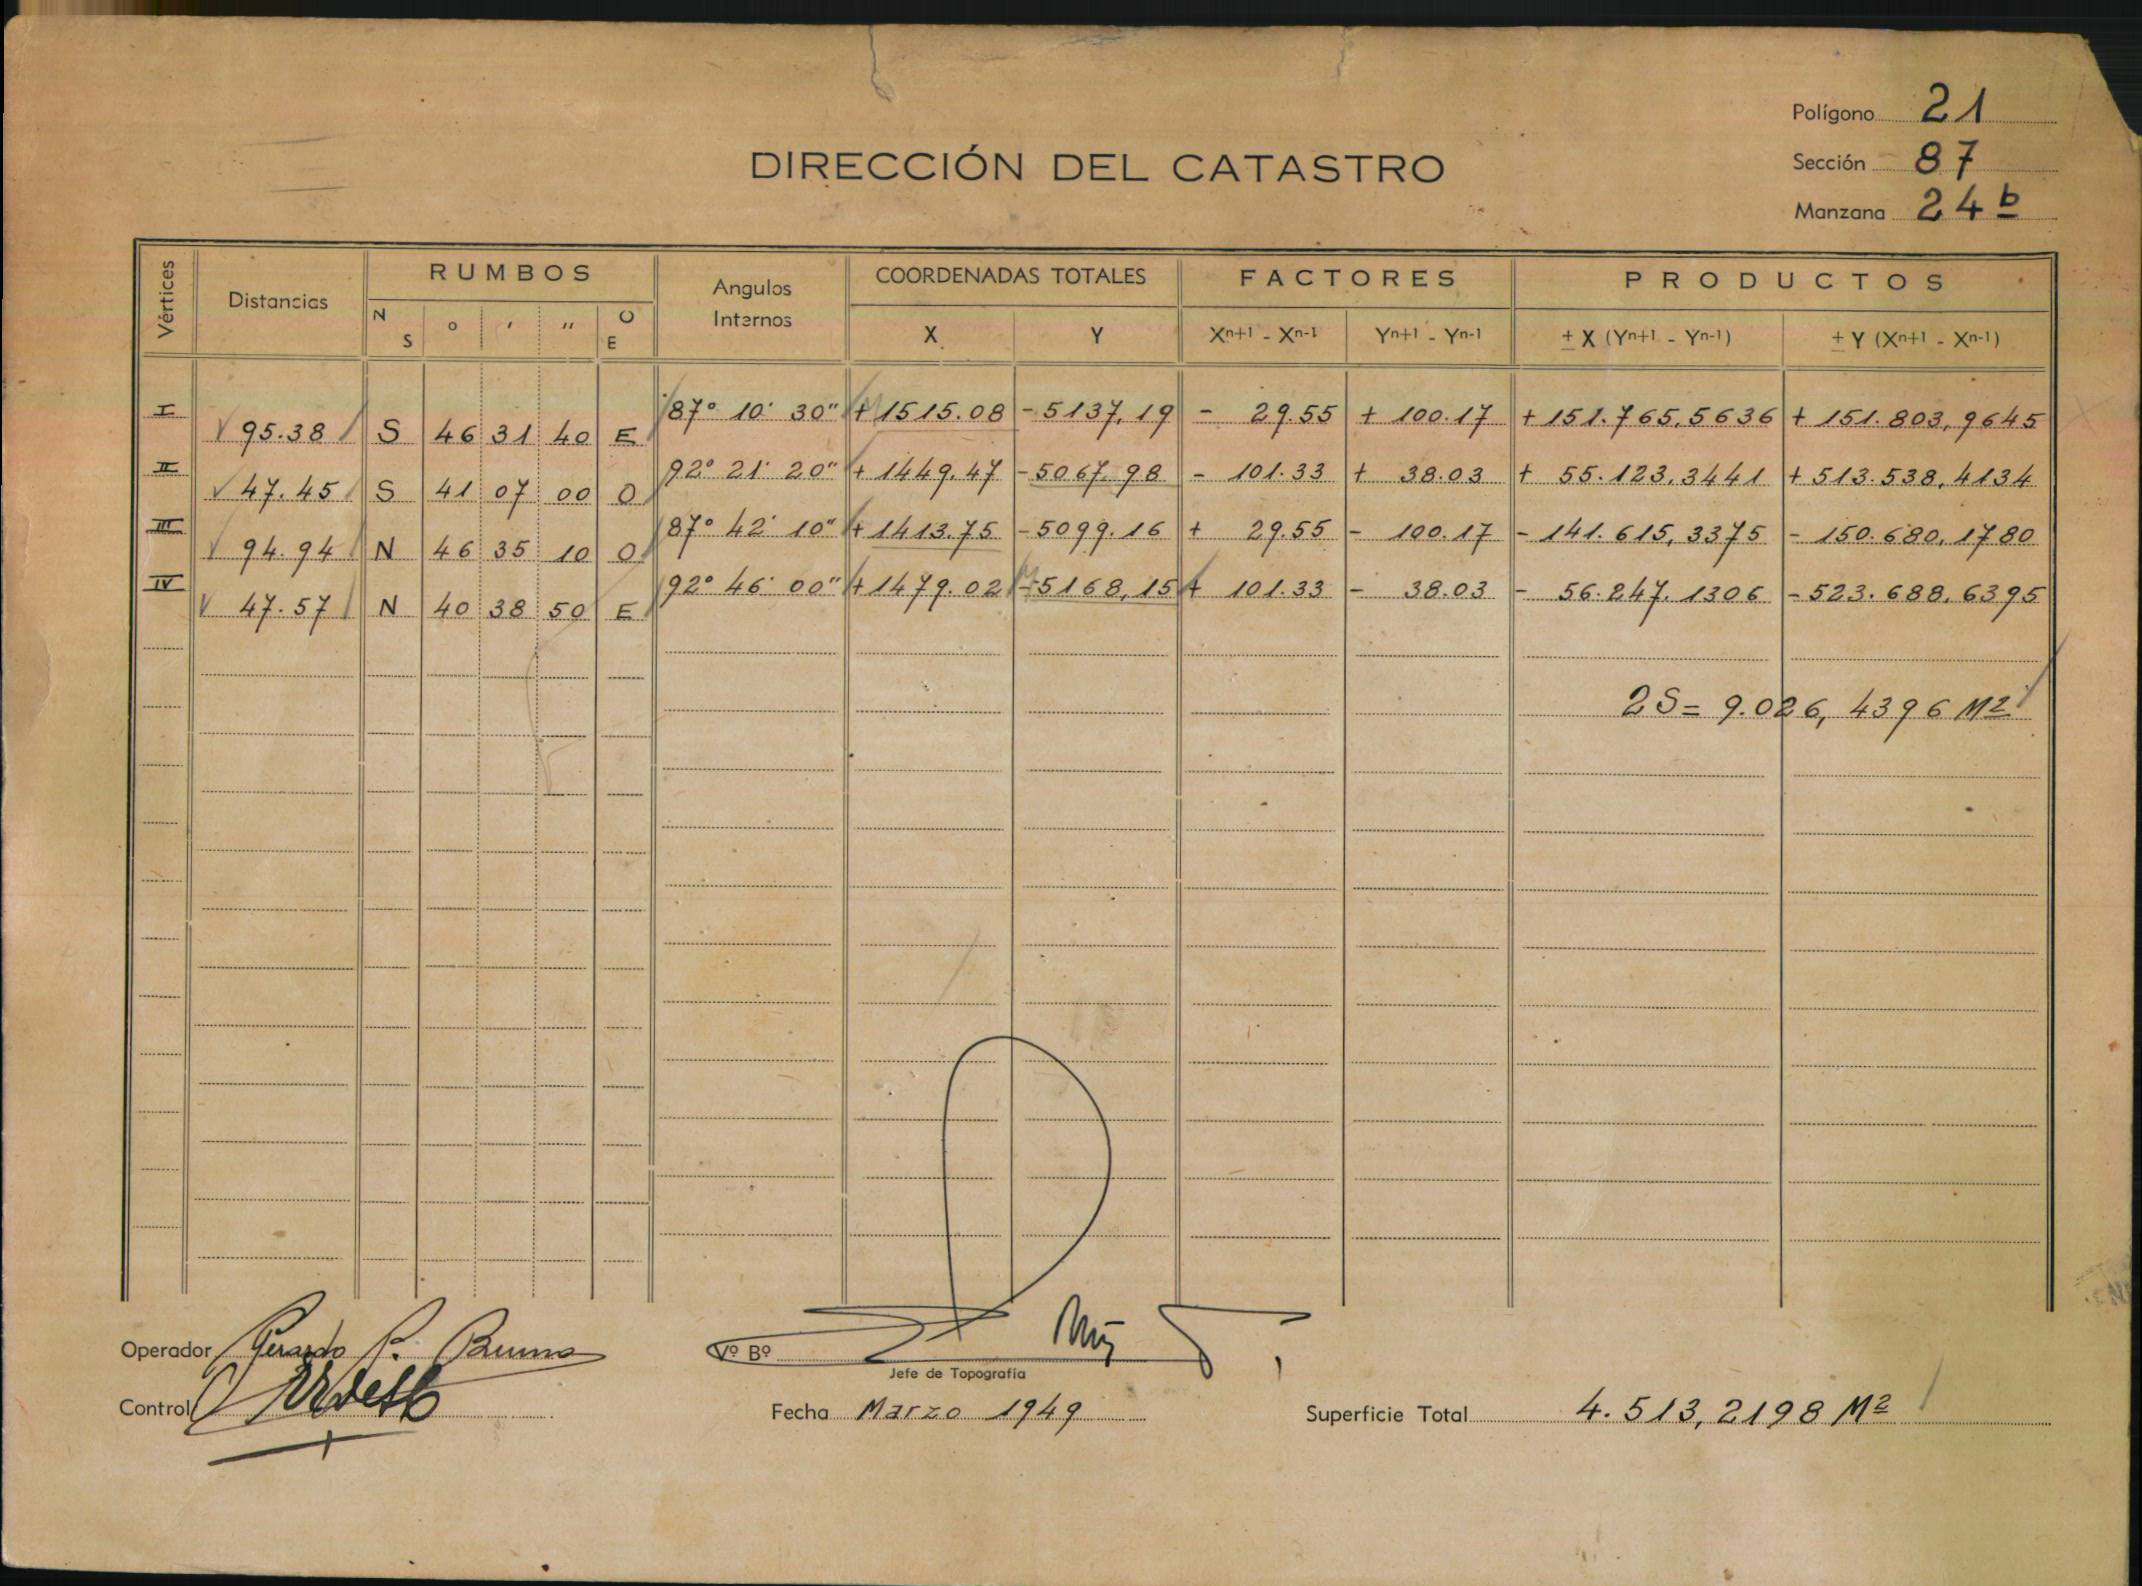 Polígono 21
DIRECCIÓN DEL CATASTRO
Sección 87
Manzana 24 b
Vértices Distancias RUMBOS Angulos Internos COORDENADAS TOTALES FACTORES PRODUCTOS
N S ° ' " O E X Y Xn+1 - Xn-1 Yn+1 - Yn-1 ± X (Yn+1 - Yn-1) ± Y (Xn+1 - Xn-1)
I 87° 10' 30" +1515.08 -5137,19 - 29.55 + 100.17 +151.765,5636 + 151.803,9645
95.38 S 46 31 40 E
II 92° 21' 20" + 1449.47 -5067.98 - 101.33 + 38.03 + 55.123,3441 +513.538,4134
47.45 S 41 07 00 O
III 87° 42' 10" +1413.75 -5099.16 + 29.55 - 100.17 -141.615,3375 - 150.680,1780
94.94 N 46 35 10 O
IV 92° 46' 00" +1479.02 -5168,15 + 101.33 - 38.03 - 56.247.1306 -523.688,6395
47.57 N 40 38 50 E
2S= 9.026,4396 M2
Operador Gerardo P. Bruno
Vº Bº
Jefe de Topografía
Control
Fecha Marzo 1949
Superficie Total 4.513,2198 M2